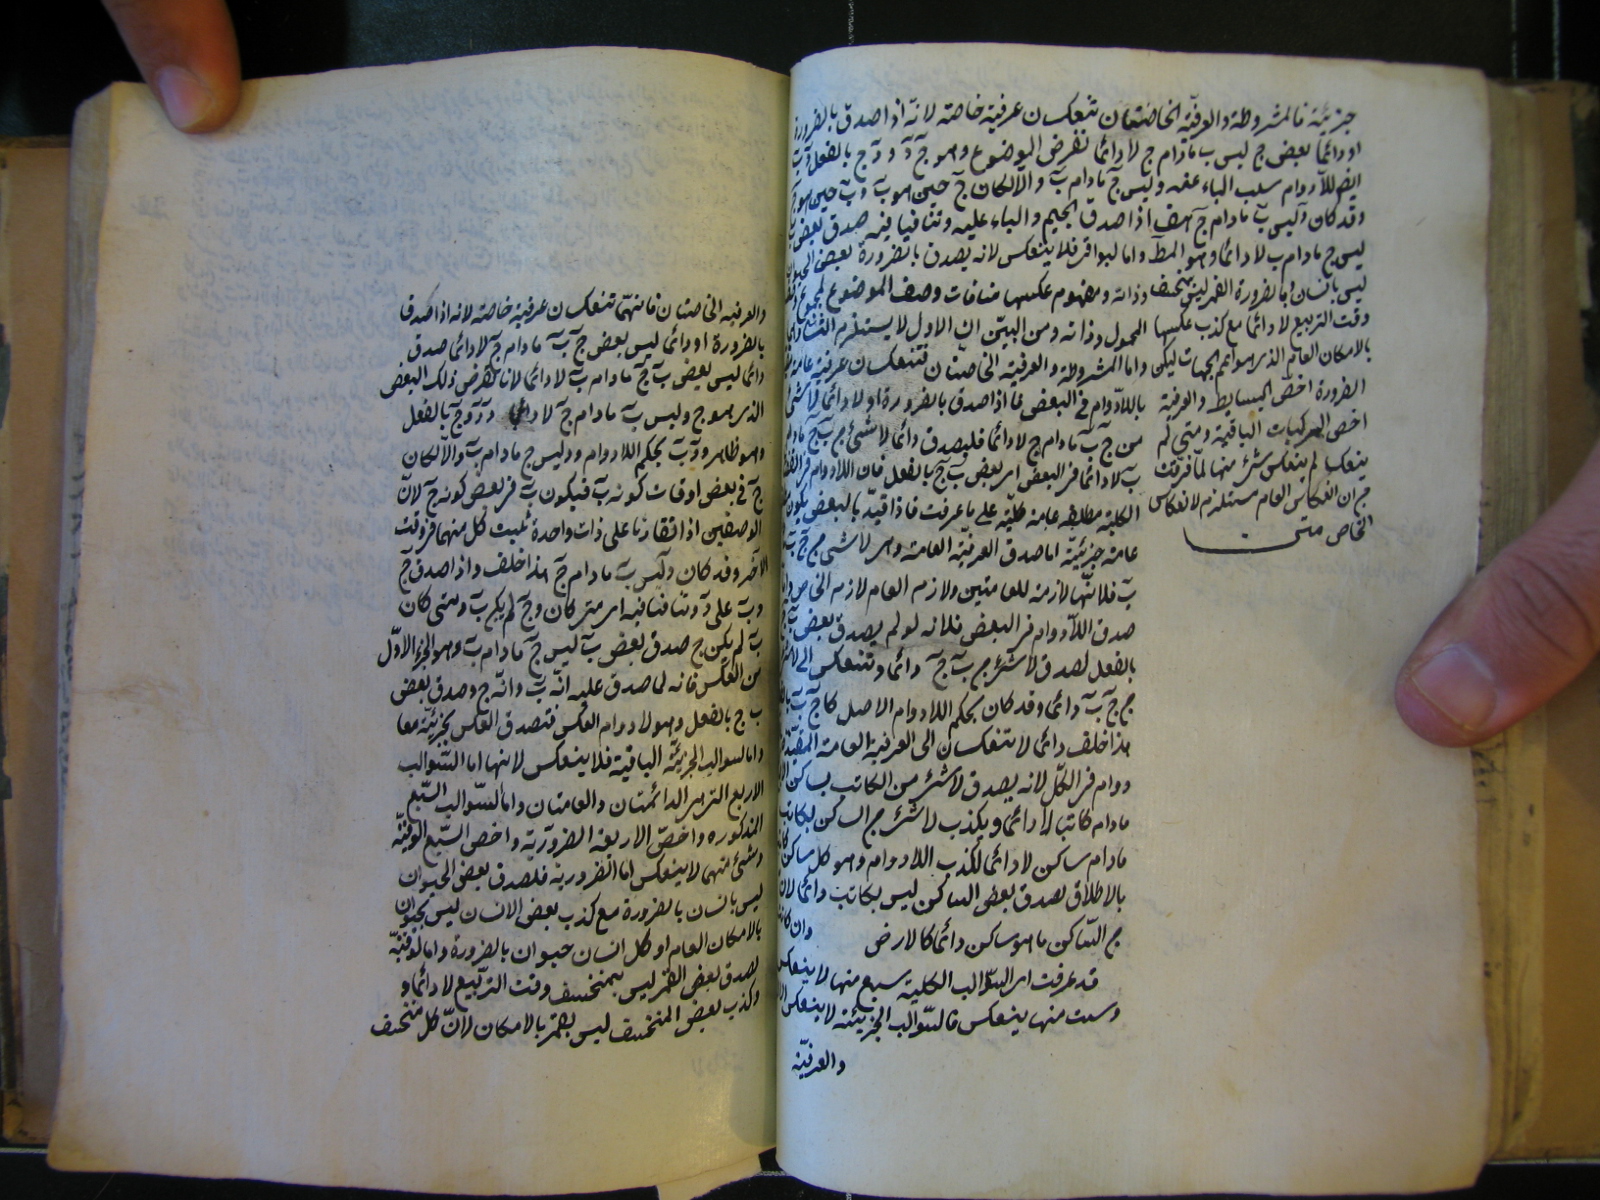 جزئية فالمشروطة والعرفية الخاصتان تنعكسان عرفية خاصة لانه اذا صدق بالضرورة
او دائما بعض ج ليس ب ما دام ج لا دائما نفرض الموضوع وهو ج د و د ج بالفعل و د ب
ايضا للادوام سلب الباء عنه وليس ج ما دام ب والا لكان ج حين هو ب و ب حين هو ج
وقد كان وليس ب ما دام ج هف اذا صدق الجيم والباء عليه وتنافيا فيه صدق بعض ب
ليس ج ما دام ب لا دائما وهو المط واما البواقى فلا ينعكس لانه يصدق بالضرورة بعض الحيوان
ليس بانسان وبالضرورة القمر ليس بمنخسف
وقت التربيع لا دائما مع كذب عكسها
بالامكان العام الذى هو اعم الجهات ليكن
الضرورة اخص البسايط والعرفية
اخص المركبات الباقية ومتى لم
ينعكسا لم ينعكس شئ منها لما عرفت
من ان انعكاس العام مستلزم لانعكاس
الخاص متن
وذاته ومفهوم عكسها منافات وصف الموضوع لمجموع
المحمول وذاته ومن البين ان الاول لا يستلزم الثانى
واما المشروطة والعرفية الخاصتان فتنعكسان عرفية عامة
باللادوام فى البعض فاذا صدق بالضرورة او لا دائما لا شئ
من ج ب ما دام ج لا دائما فليصدق دائما لا شئ من ب ج ما دام
ب لا دائما فى البعض اى بعض ب ج بالفعل فان اللادوام فى القضايا
الكلية مطلقة عامة كلية على ما عرفت فاذا قيد بالبعض يكون
عامة جزئية اما صدق العرفية العامة وهى لا شئ من ج ب
ب فلانها لازمة للعامتين ولازم العام لازم الخاص
صدق اللادوام فى البعض فلانه لو لم يصدق بعض ب ج
بالفعل لصدق لا شئ من ب ج دائما وتنعكس الى لا شئ
من ج ب دائما وقد كان بحكم اللادوام الاصل كل ج ب
هذا خلف دائما لا تنعكسان الى العرفية العامة المقيدة
دوام فى الكل لانه يصدق لا شئ من الكاتب بساكن
ما دام كاتبا لا دائما ويكذب لا شئ من الساكن بكاتب
ما دام ساكن لا دائما لكذب اللادوام وهو كل ساكن
بالاطلاق لصدق بعض الساكن ليس بكاتب دائما لان
من الساكن ما هو ساكن دائما كالارض وان كانت
قد عرفت ان السوالب الكلية سبع منها لا ينعكس
وست منها ينعكس فالسوالب الجزيئة لا ينعكس الا
والعرفية
والعرفيه الخاصتان فانهما تنعكسان عرفية خاصة لانه اذا صدق
بالضرورة او دائما ليس بعض ج ب ما دام ج لا دائما صدق
دائما ليس بعض ب ج ما دام ب لا دائما لانا نفرض ذلك البعض
الذى هو ج وليس ب ما دام ج لا دائما د فد ج بالفعل
وهو ظاهر و د ب بحكم اللادوام و د ليس ج ما دام ب والا لكان
ج فى بعض اوقات كونه ب فيكون ب فى بعض كونه ج لان
الوصفين اذا تقارنا على ذات واحدة يثبت كل منهما فى وقت
الآخر وقد كان د ليس ب ما دام ج هذا خلف واذا صدق ج
و ب على د وتنافتا فيه اى متى كان و ج لم يكن ب ومتى كان
ب لم يكن ج صدق بعض ب ليس ج ما دام ب وهو الجزء الاول
من العكس فانه لما صدق عليه انه ب وانه ج وصدق بعض
ب ج بالفعل وهو لا دوام العكس فتصدق العكس بجزئيه معا
واما السوالب الجزيئة الباقية فلا ينعكس لانها اما السوالب
الاربع التى هى الدائمتان والعامتان واما السوالب السبع
المذكوره واخص الاربعة الضرورية واخص السبع الوقتية
وشئ منهما لا ينعكس اما الضرورية فلصدق بعض الحيوان
ليس بانسان بالضرورة مع كذب بعض الانسان ليس بحيوان
بالامكان العام او كل انسان حيوان بالضرورة واما الوقتية
لصدق بعض القمر ليس بمنخسف وقت التربيع لا دائما و
وكذب بعض المنخسف ليس بقمر بالامكان لان كل منخسف